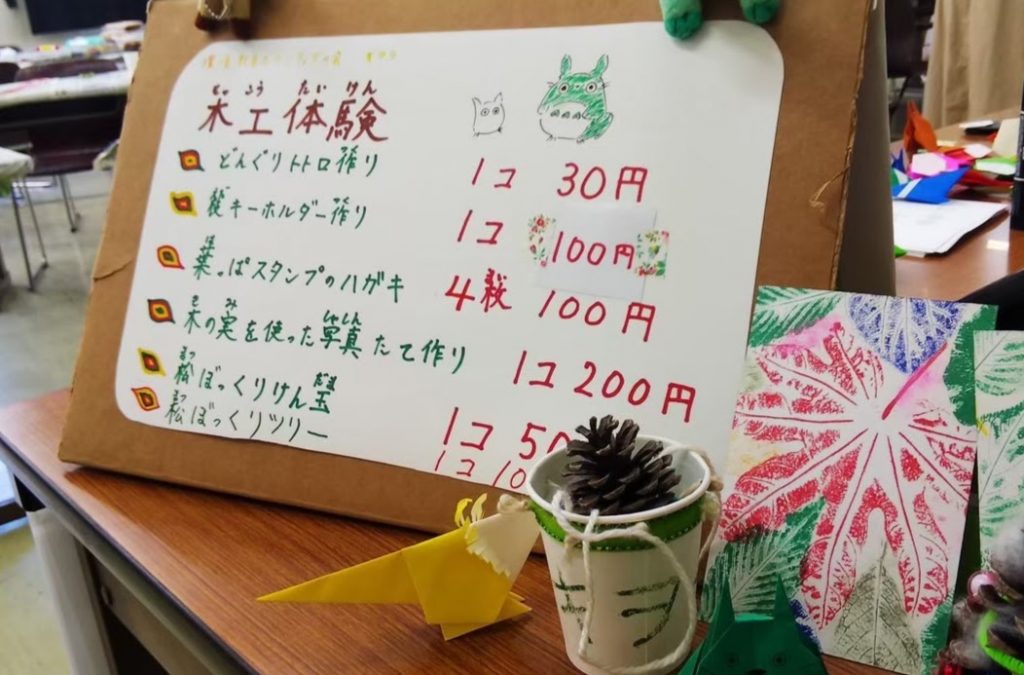 もっ こう たい けん
木工体験
どんぐりトトロ作り 1コ 30円
キーホルダー作り 1コ 100円
は
葉っぱスタンプのハガキ 4枚 100円
き み しゃしん
木の実を使った写真たて作り 1コ 200円
まつ だま
松ぼっくりけん玉 1コ 50
まつ
松ぼっくりツリー 1コ 10